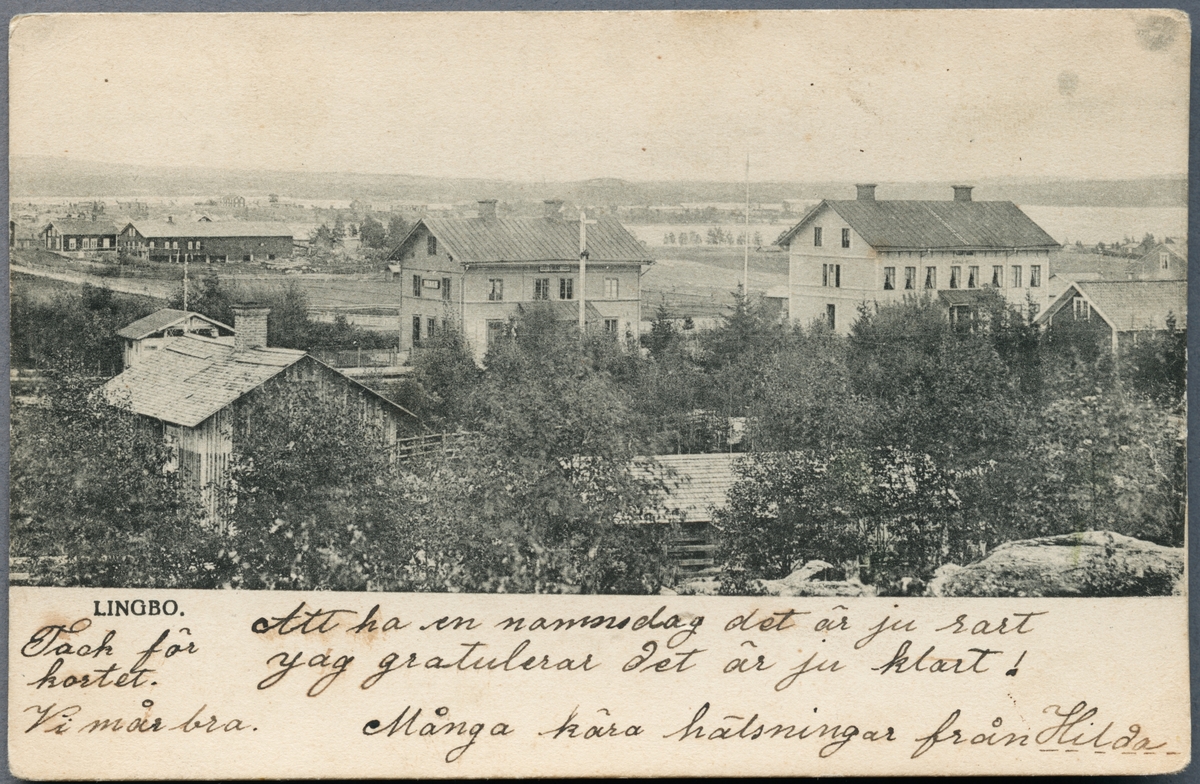 LINGBO.
Tack för
kortet.
Vi mår bra.
Att ha en namnsdag det är ju rart
yag gratulerar det är ju klart!
Många kära hälsningar från Hilda.